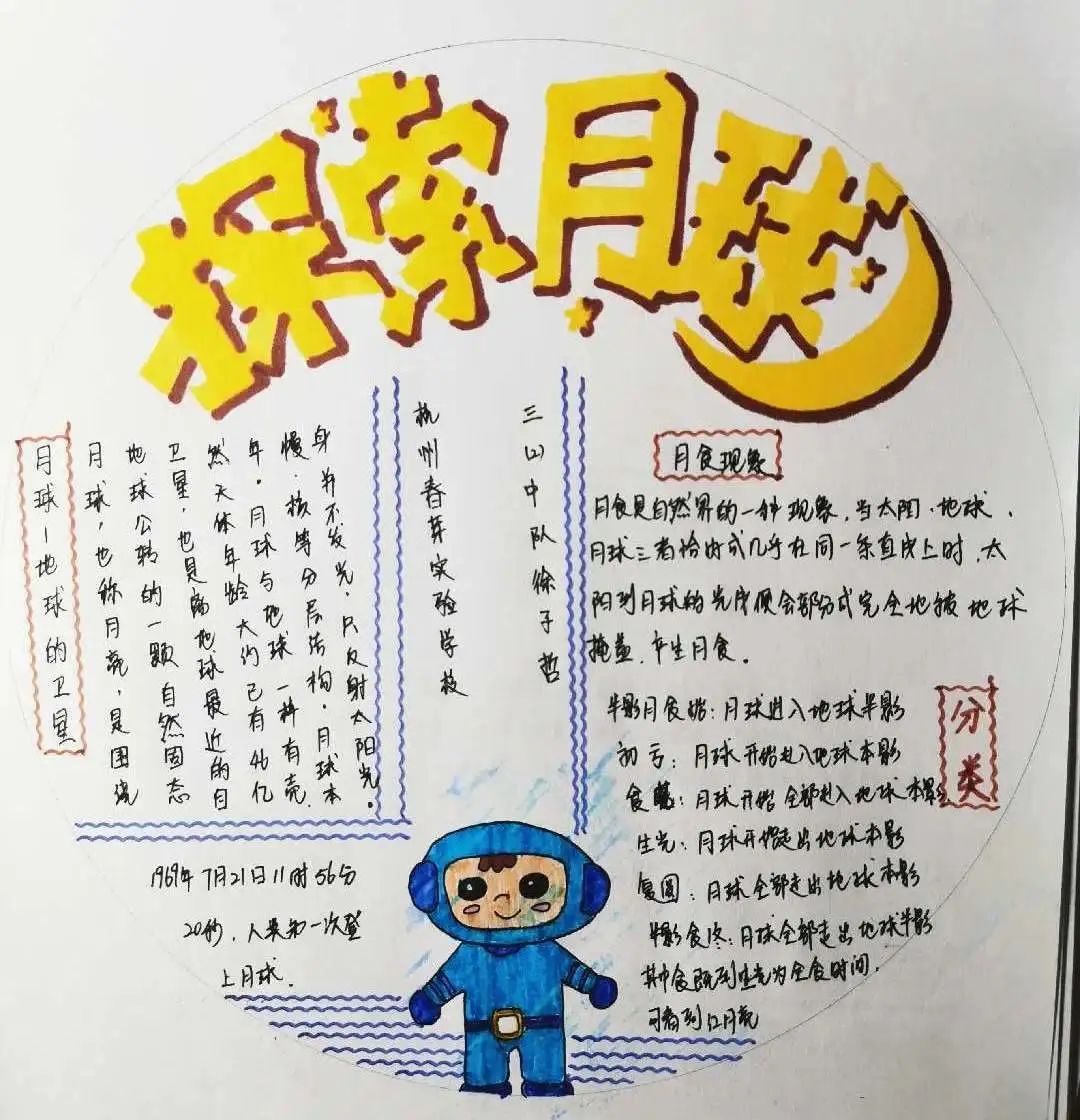 探索月球
月球-地球的卫星
月球,也称月亮,是围绕
地球公转的一颗自然固态
卫星,也是离地球最近的自
然天体年龄大约已有46亿
年。月球与地球一样有壳.
慢.核等分层结构。月球本
身并不发光,只反射太阳光。
杭州春芽实验学校
三(2)中队徐子哲
月食现象
月食是自然界的一种现象,当太阳、地球、
月球三者恰好或几乎在同一条直线上时,太
阳到月球的光便会部分或完全地被地球
掩盖,产生月食。
分类
半影月食始:月球进入地球半影
初亏:月球开始进入地球本影
食:月球开始全部进入地球本影
生光:月球开始走出地球本影
复圆:月球全部走出地球本影
半影食终:月球全部走出地球半影
其中食既到生光为全食时间,
可看到红月亮
1969年7月21日11时56分
20秒,人类第一次登
上月球.